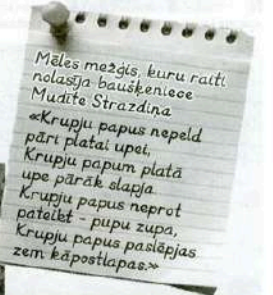 Mēles mežģis, kuru raiti
nolasīja bauškeniece
Mudīte Strazdiņa
«Krupju papus nepeld
pāri platai upei,
Krupju papum platā
upe pārāk slapja.
Krupju papus neprot
pateikt - pupu zupa,
Krupju papus paslēpjas
zem kāpostlapas.»